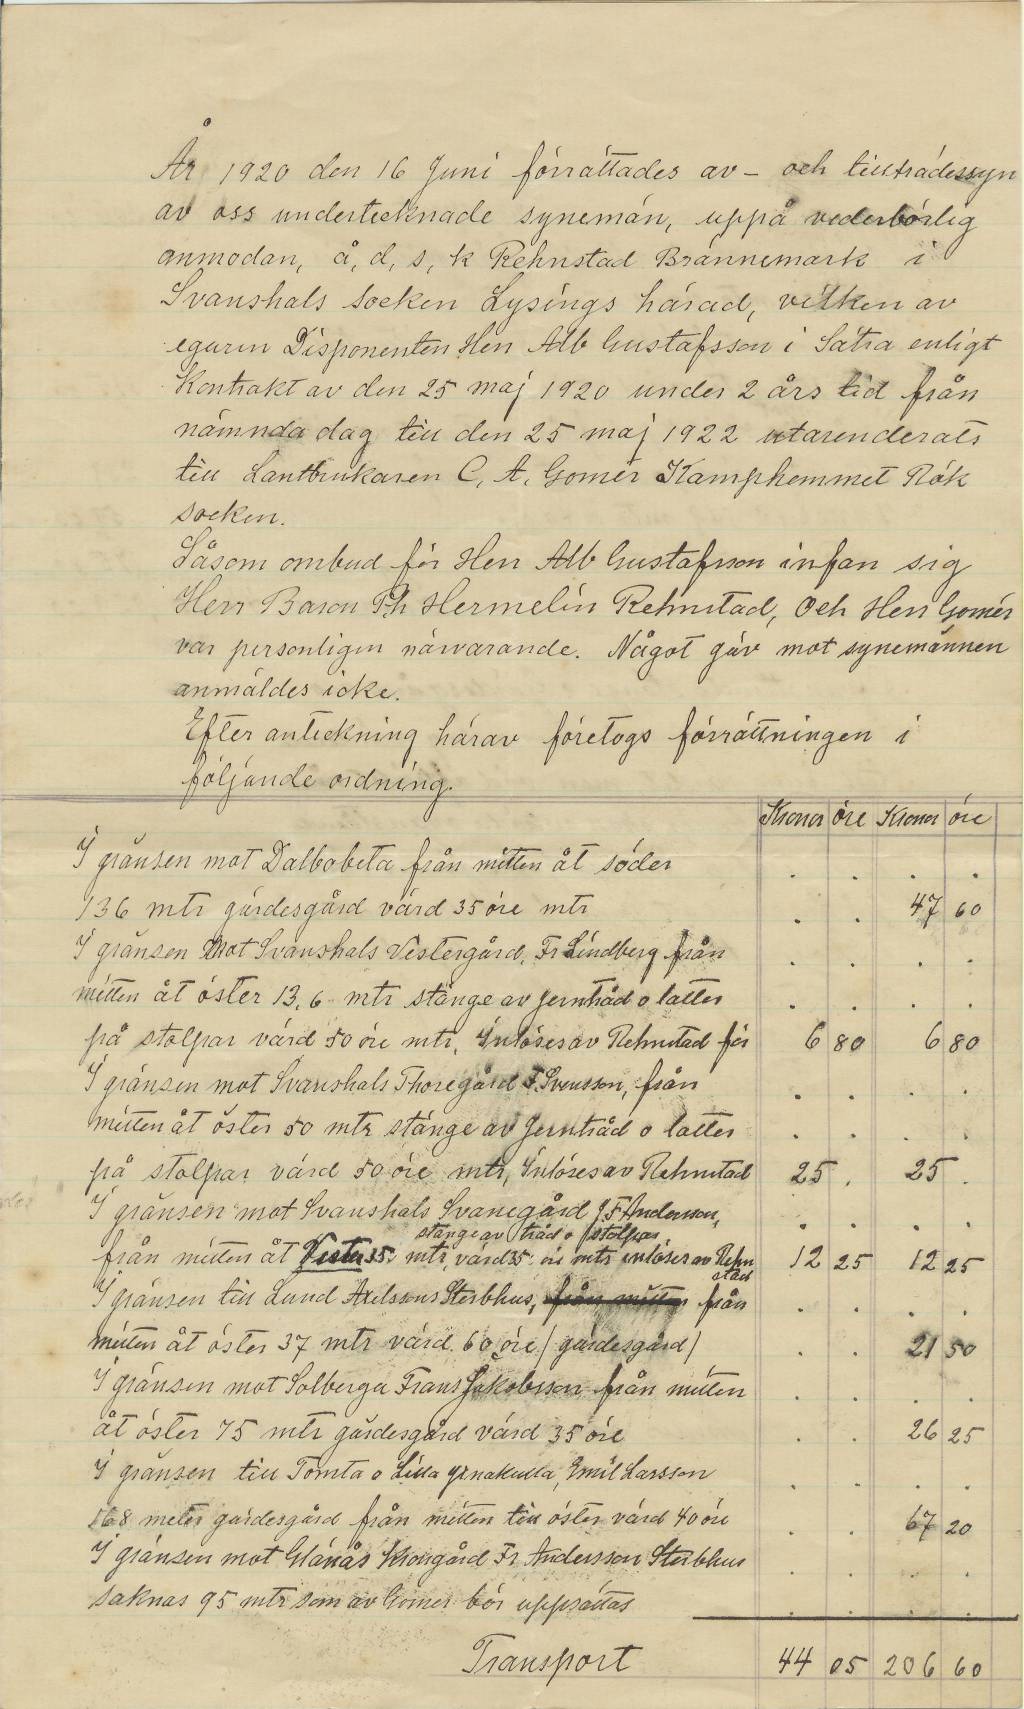 År 1920 den 16 Juni förrättades av- och tillträdessyn
av oss undertecknade synemän, uppå vederbörlig
anmodan, å, d, s, k Rehnstad Brännemark i
Svanshals socken Lysings härad, vilken av
egaren Disponenten Herr Alb Gustafsson i Sätra enligt
Kontrakt av den 25 maj 1920 under 2 års tid från
nämnda dag till den 25 maj 1922 utarenderats
till Lantbrukaren C, A, Gomér Kamphemmet Rök
socken.
Såsom ombud för Herr Alb Gustafsson infan sig
Herr Baron Ph Hermelin Rehnstad, Och Herr Gomér
var personligen närvarande. Något gäv mot synemännen
anmäldes icke.
Efter anteckning härav företogs förrättningen i
följande ordning.
Kronor öre Kronor öre
I gränsen mot Dalbobeta från mitten åt söder
136 mtr gärdesgård värd 35 öre mtr 47 60
I gränsen Mot Svanshals Vestergård, Fr Lindberg från
mitten åt öster 13,6 mtr stänge av jerntråd o latter
på stolpar värd 50 öre mtr, Inlöses av Rehnstad för 6 80 6 80
I gränsen mot Svanshals Thoregård F. Svensson, från
mitten åt öster 50 mtr stänge av Jerntråd o latter
på stolpar värd 50 öre mtr, Inlöses av Rehnstad 25 . 25 .
I gränsen mot Svanshals Svanegård J F Anderson,
stänge av tråd o stolpar
från mitten åt Vester 35 mtr, värd 35 öre mtr inlöses av Rehn 12 25 12 25
stad
I gränsen till Lund Axelssons Sterbhus, från mitten från
mitten åt öster 37 mtr värd. 60 öre / gärdesgård / 21 50
I gränsen mot Solberga Frans Jakobsson från mitten
åt öster 75 mtr gärdesgård värd 35 öre 26 25
I gränsen till Tomta o Lilla Emil Larsson
168 meter gärdesgård från mitten till öster värd 40 öre 67 20
I gränsen mot Glänås Krongård Fr Andersson Sterbhus
saknas 95 mtr som av Gomer bör uppsättas
Transport 44 05 206 60